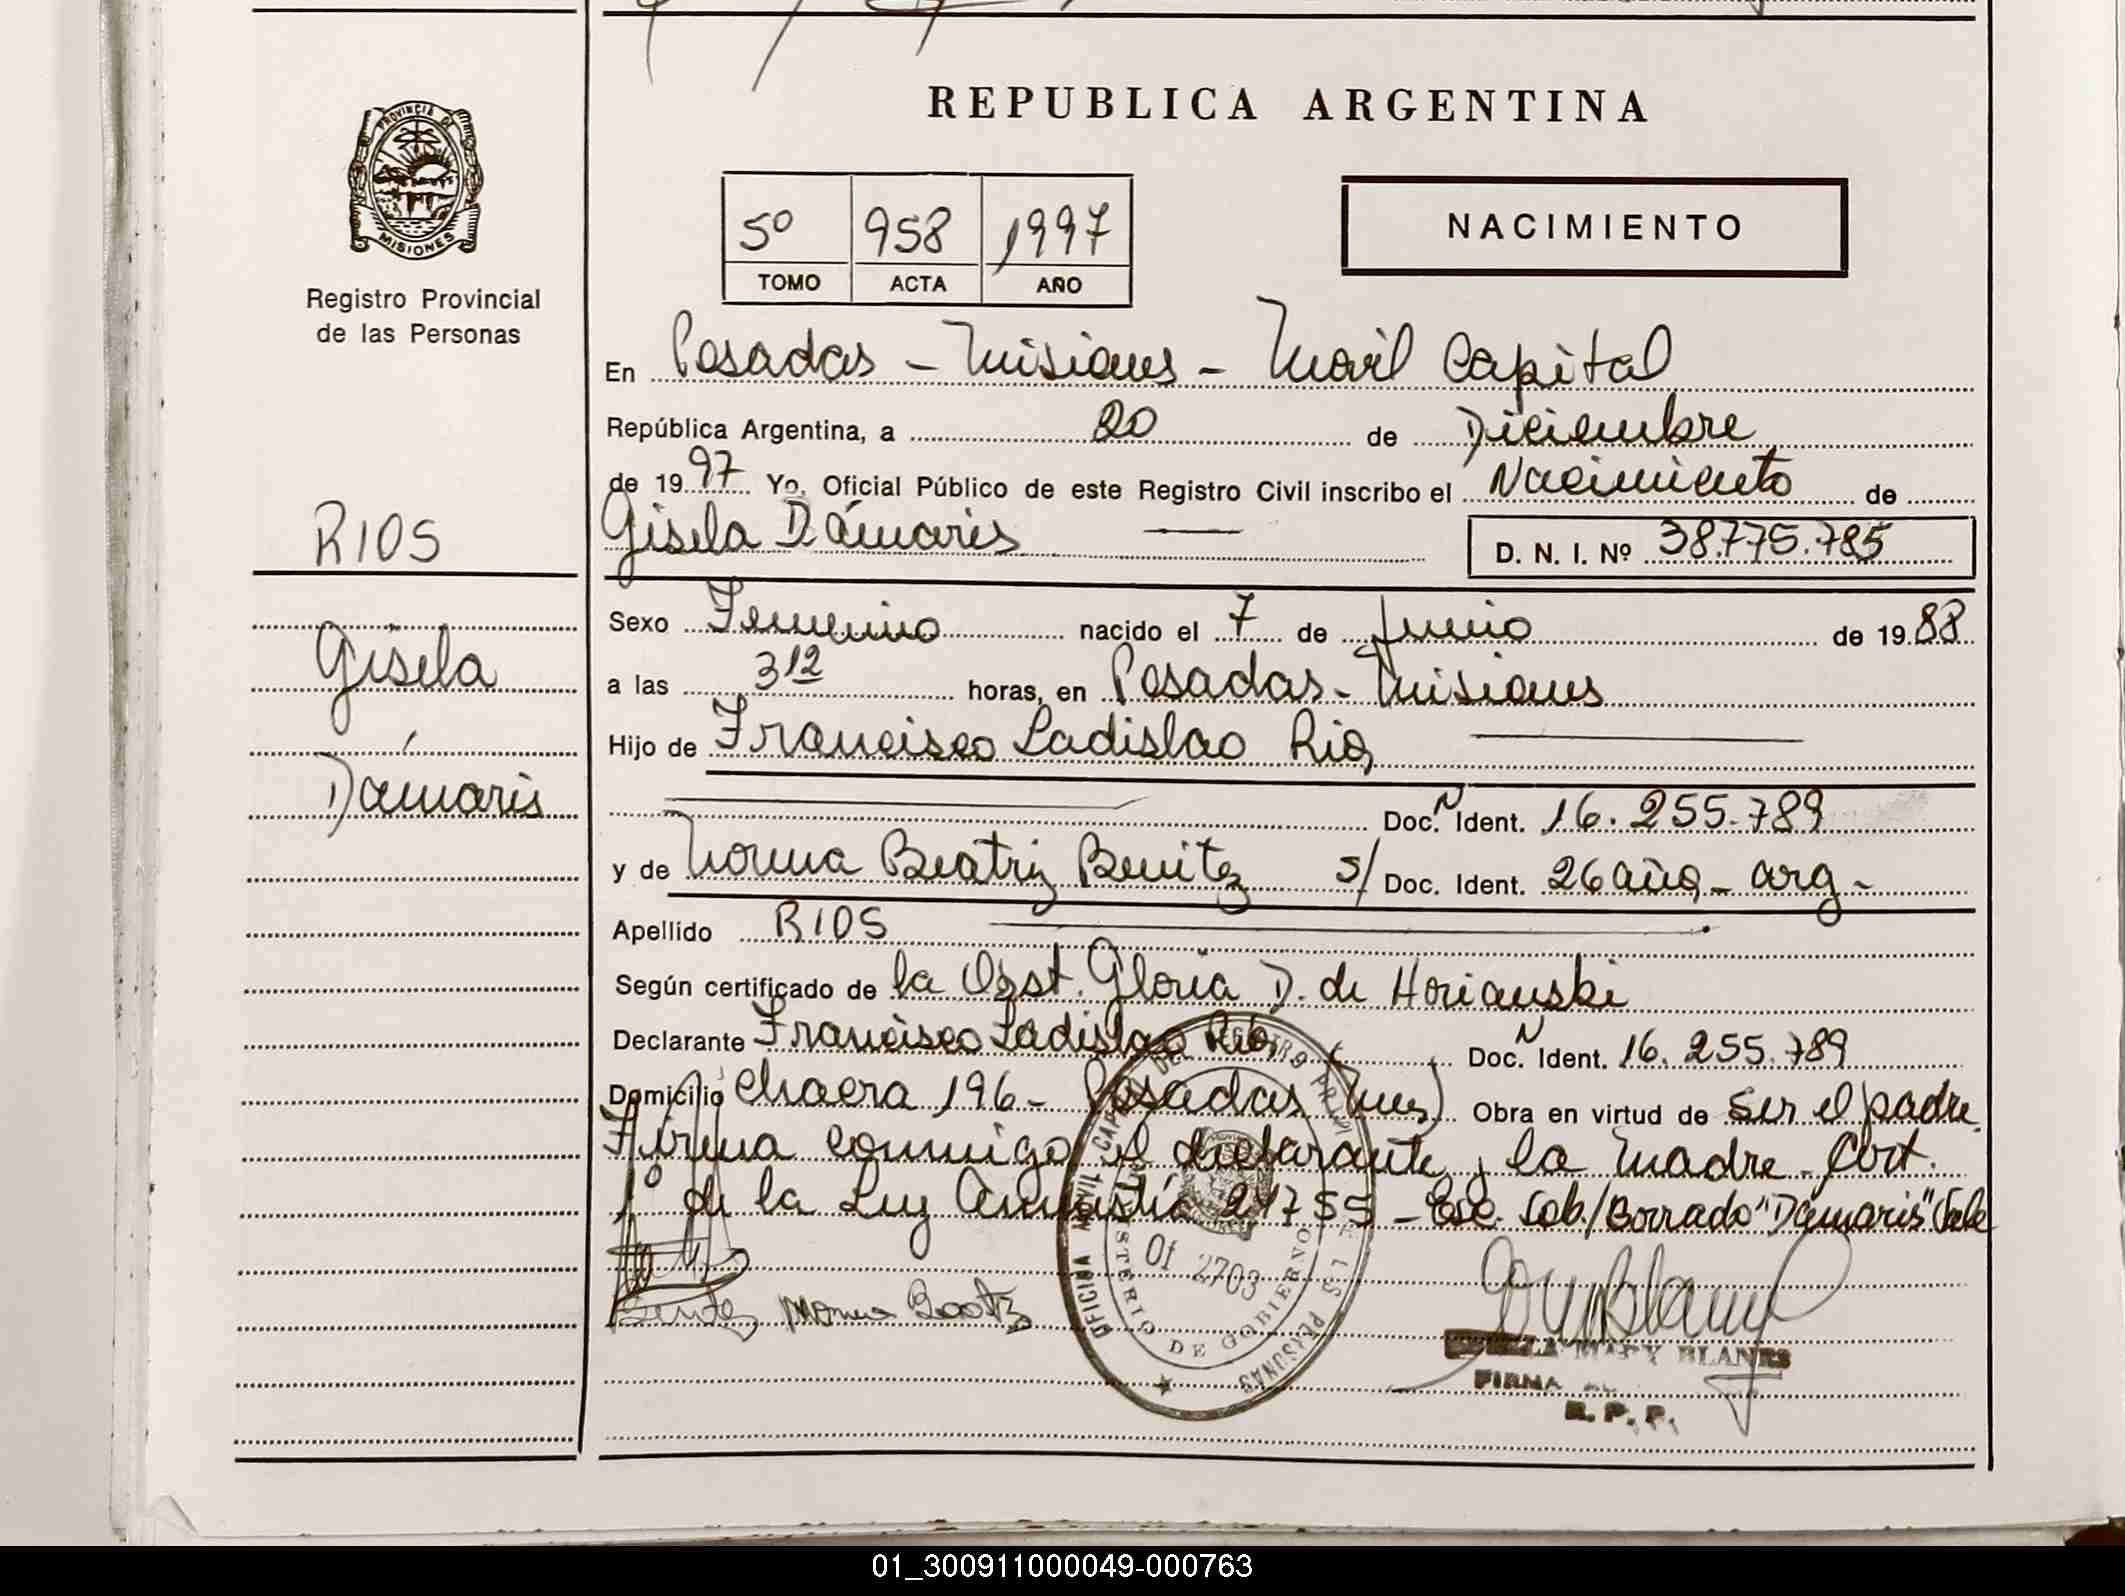 REPUBLICA ARGENTINA
PROVINCIA DE
MISIONES
Registro Provincial
de las Personas
5º 958 1997
TOMO ACTA AÑO
NACIMIENTO
En Posadas - Misiones - Movil Capital
República Argentina, a 20 de Diciembre
de 1997 Yo, Oficial Público de este Registro Civil inscribo el Nacimiento de
RIOS
Gisela Dámaris D. N. I. Nº 38.775.785
Sexo Femenino nacido el 7 de Junio de 1988
Gisela
a las 3 12 horas, en Posadas - Misiones
Hijo de Francisco Ladislao Rios
Dámaris
Doc. N Ident. 16.255.789
y de Norma Beatriz Benitez s/ Doc. Ident. 26 años - arg -
Apellido RIOS
Según certificado de la Obst. Gloria D. de Horianski
Declarante Francisco Ladislao Rios Doc. N Ident. 16.255.789
Domicilio Chacra 196 - Posadas (Mnes) Obra en virtud de ser el padre.
Firma conmigo el declarante y la madre. Cert.
1º de la Ley Amnistia 24755 - Esc. Sob/Borrado "Dámaris" Vale
OFICINA MOVIL CAPITAL DEL REGISTRO
DE LAS PERSONAS
MINISTERIO DE GOBIERNO
Of 2703
Benitez Norma Beatriz
MARY BLANES
FIRMA
R. P. P.
01_300911000049-000763